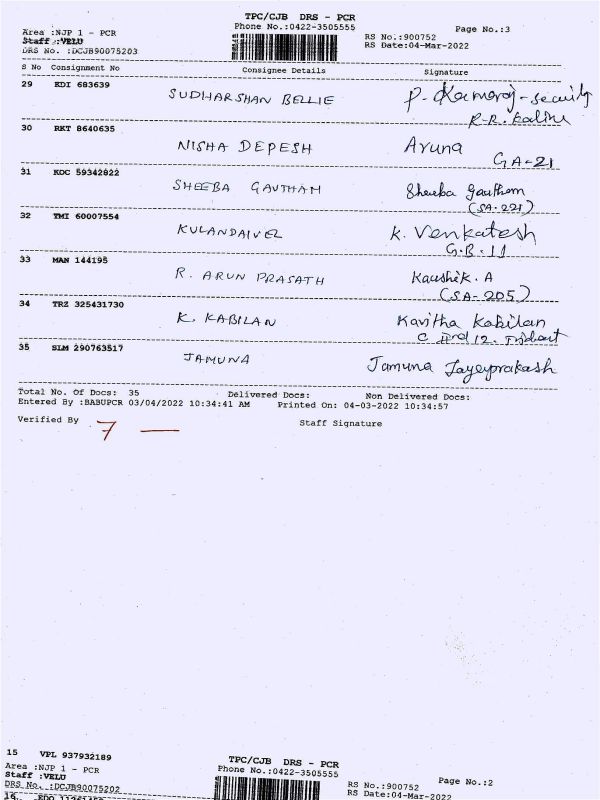 TPC/CJB DRS - PCR
Area :NJP 1 - PCR
Phone No.:0422-3505555
Page No.:3
Staff :VELU
RS No.:900752
DRS No. :DCJB90075203
RS Date:04-Mar-2022
S No Consignment No Consignee Details Signature
29 EDI 683639
SUDHARSHAN BELLIE P. Kamaraj - security
R-R. Kaline
30 RKT 8640635
NISHA DEPESH Aruna
GA-21
31 KOC 59342822
SHEEBA GAUTHAM Sheeba Gautham
(SA-221)
32 TMI 60007554
KULANDAIVEL K. Venkatesh
G.B-11
33 MAN 144195
R. ARUN PRASATH Kaushik. A
(SA-205)
34 TRZ 325431730
K. KABILAN Kavitha Kabilan
C 12. Trident
35 SLM 290763517
JAMUNA Jamuna Jayeprakash
Total No. Of Docs: 35 Delivered Docs: Non Delivered Docs:
Entered By :BABUPCR 03/04/2022 10:34:41 AM Printed On: 04-03-2022 10:34:57
Verified By 7 — Staff Signature
15 VPL 937932189
TPC/CJB DRS - PCR
Area :NJP 1 - PCR
Phone No.:0422-3505555
Page No.:2
Staff :VELU
RS No.:900752
DRS No. :DCJB90075202
RS Date:04-Mar-2022